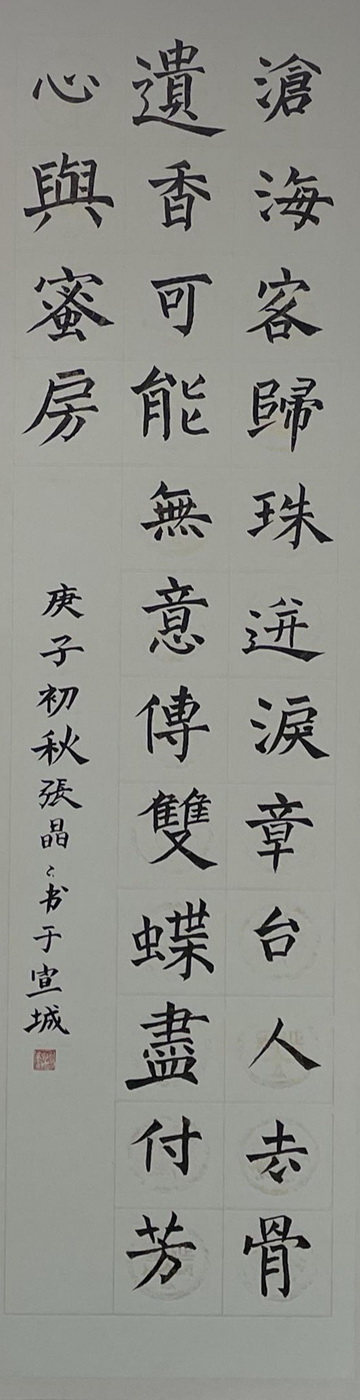 滄海客歸珠迸淚章台人去骨
遺香可能無意傳雙蝶盡付芳
心與蜜房
庚子初秋張晶晶书于宣城